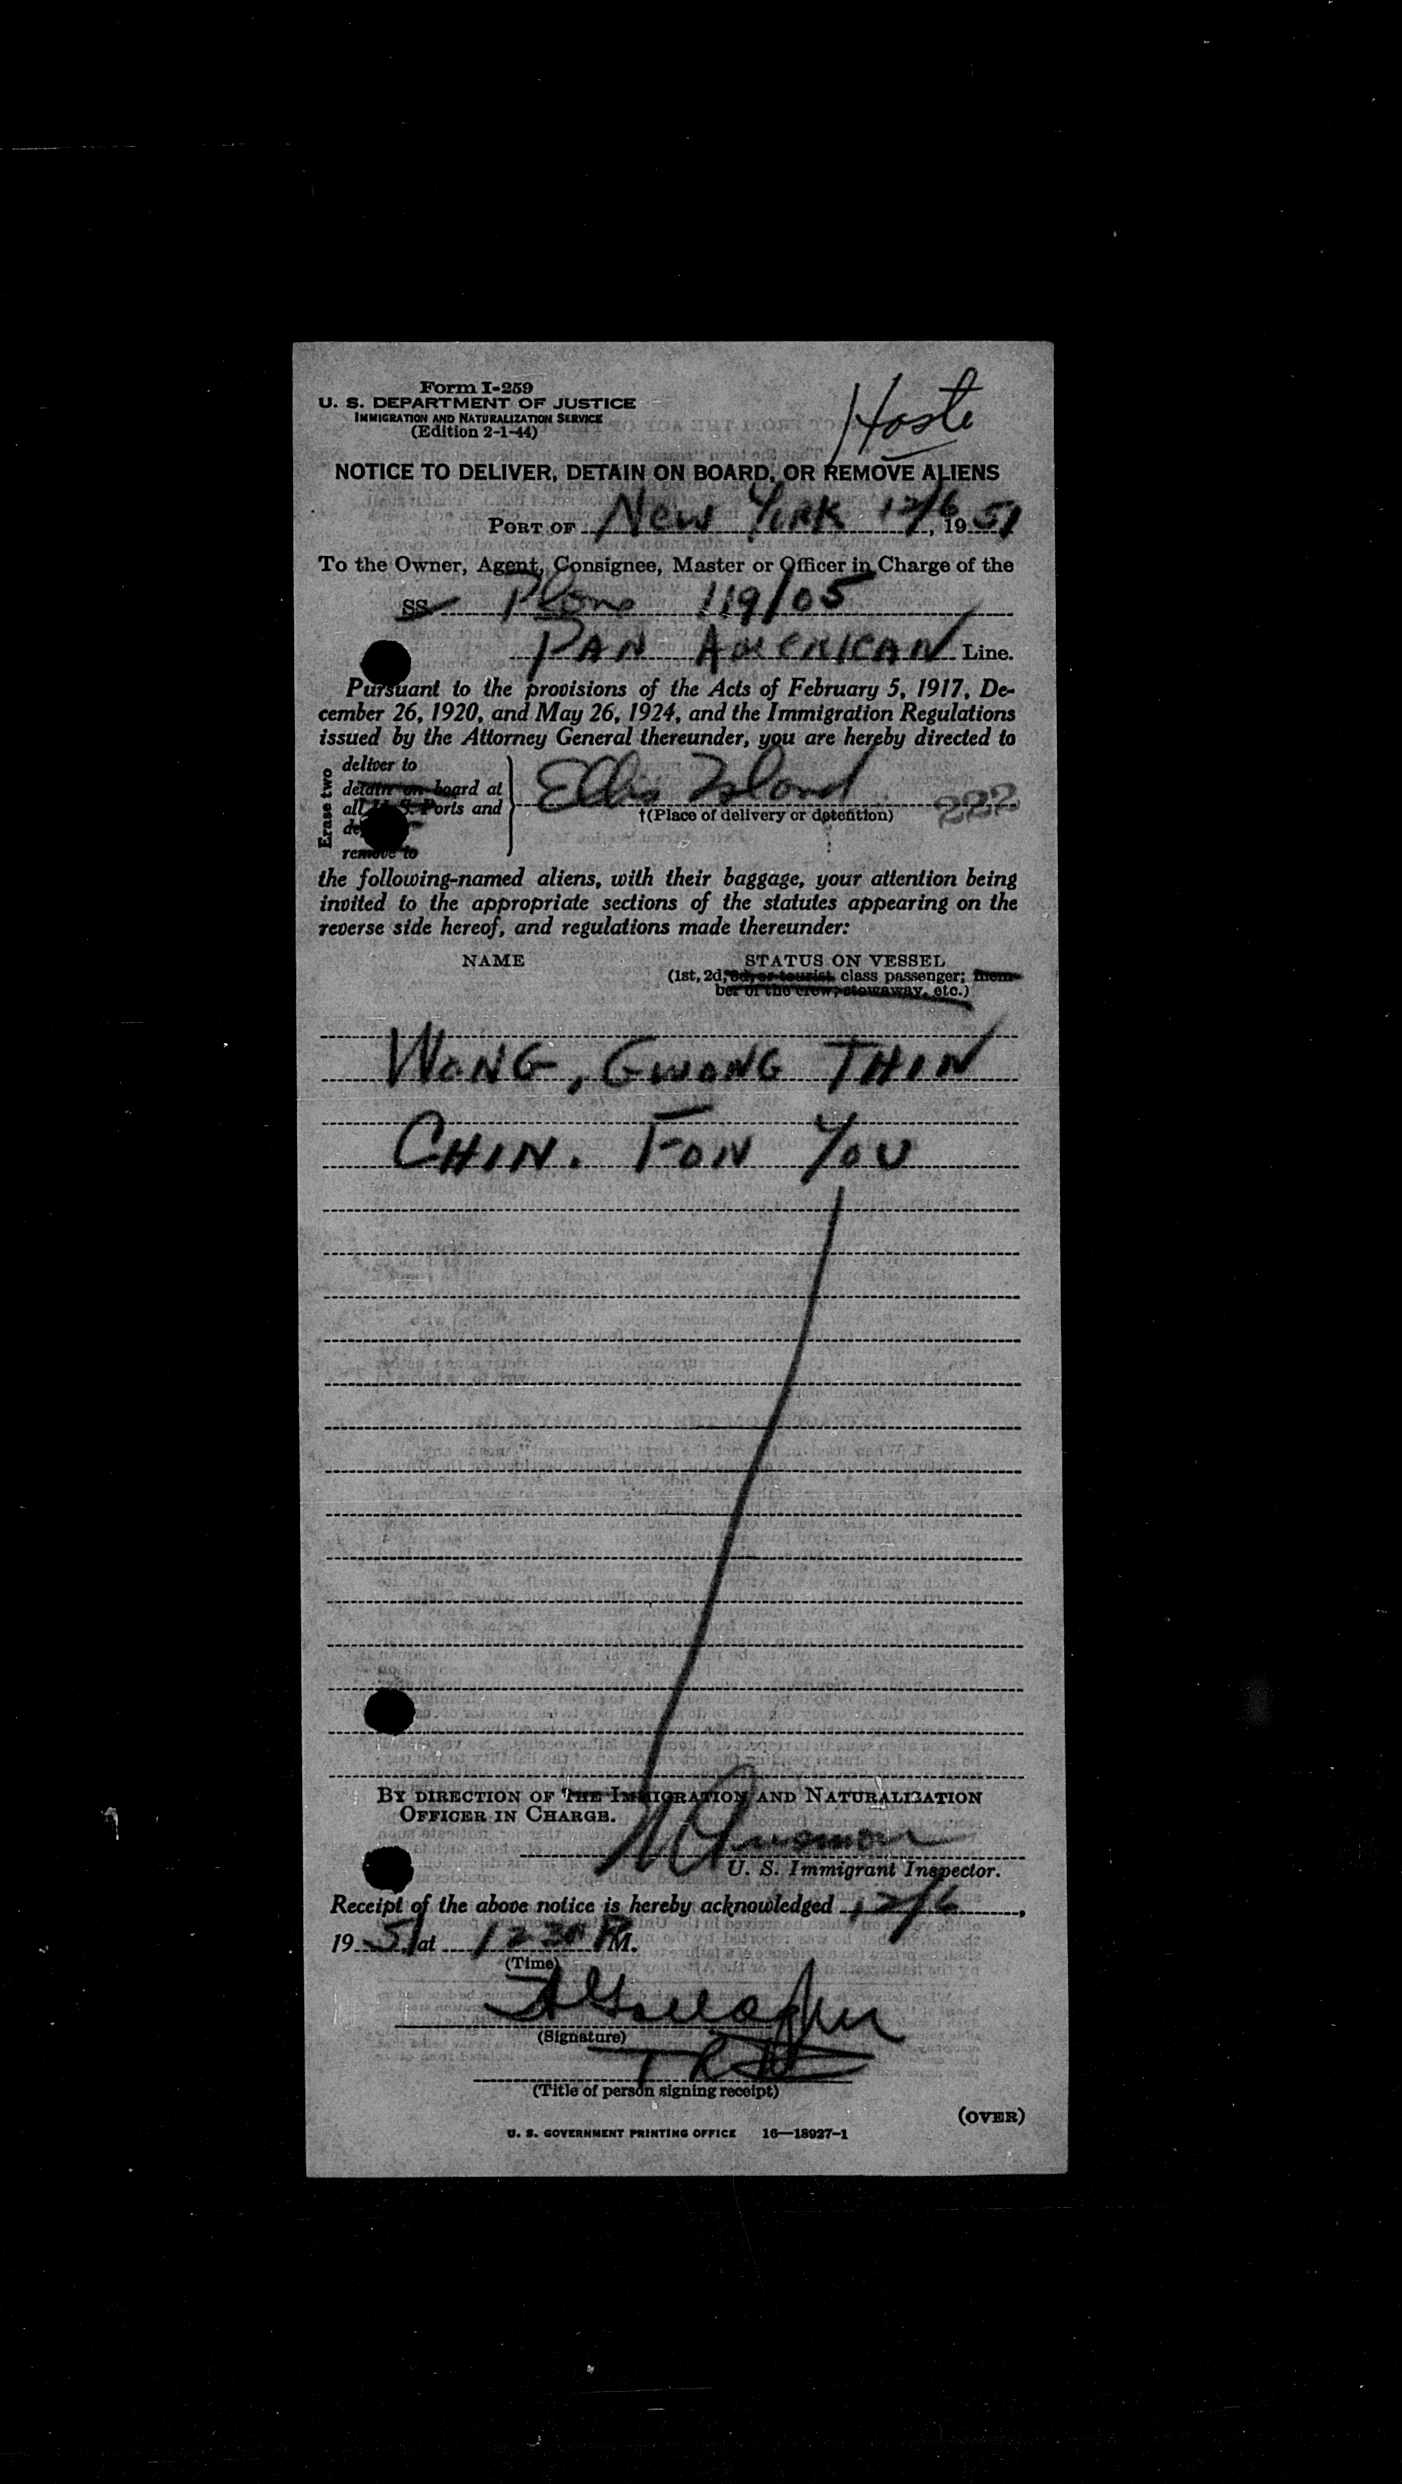 Form I-259
U. S. DEPARTMENT OF JUSTICE
IMMIGRATION AND NATURALIZATION SERVICE
(Edition 2-1-44)
Hoste
NOTICE TO DELIVER, DETAIN ON BOARD, OR REMOVE ALIENS
PORT OF NEW YORK 12/6, 1951
To the Owner, Agent, Consignee, Master or Officer in Charge of the
SS Plane 119/05
PAN AMERICAN Line.
Pursuant to the provisions of the Acts of February 5, 1917, De-
cember 26, 1920, and May 26, 1924, and the Immigration Regulations
issued by the Attorney General thereunder, you are hereby directed to
Erase two
deliver to
detain on board at
all U. S. Ports and
remove to
Ellis Island
222
†(Place of delivery or detention)
the following-named aliens, with their baggage, your attention being
invited to the appropriate sections of the statutes appearing on the
reverse side hereof, and regulations made thereunder:
NAME STATUS ON VESSEL
(1st, 2d, 3d, or tourist class passenger; mem-
ber of the crew, stowaway, etc.)
WONG, GWONG THIN
CHIN. FON YOU
BY DIRECTION OF THE IMMIGRATION AND NATURALIZATION
OFFICER IN CHARGE.
U. S. Immigrant Inspector.
Receipt of the above notice is hereby acknowledged 12/6,
1951 at 12 30 PM.
(Time)
(Signature)
(Title of person signing receipt)
(OVER)
U. S. GOVERNMENT PRINTING OFFICE 16—18927-1